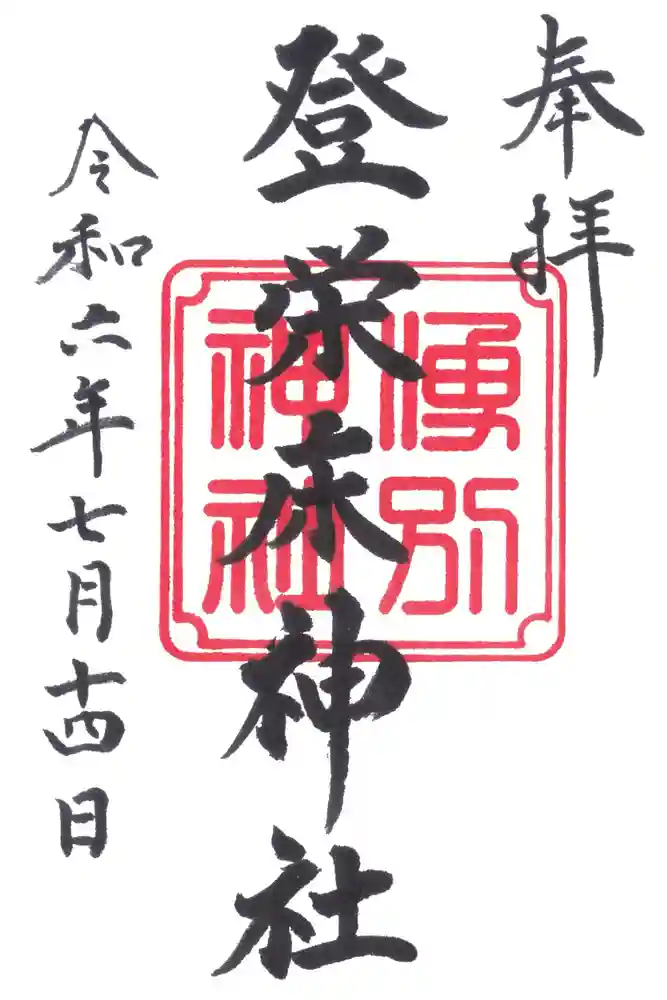 奉拝
登栄床神社
令和六年七月十四日
湧別
神社